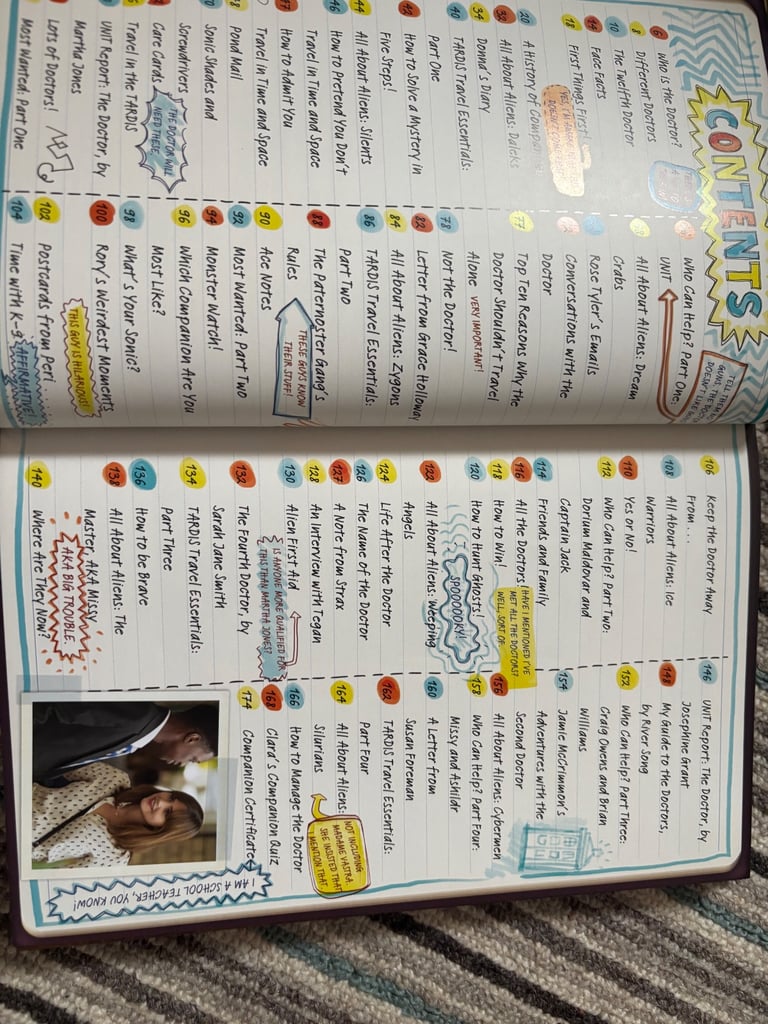 CONTENTS
6 Who is the Doctor?
8 Different Doctors
10 The Twelfth Doctor
14 Face Facts
18 First Things First!
20 A History of
30 All About Aliens: Daleks
34 Donna's Diary
40 TARDIS Travel Essentials:
Part One
42 How to Solve a Mystery in
Five Steps!
44 All About Aliens: Silents
46 How to Pretend You Don't
Travel in Time and Space
How to Admit You
Travel in Time and Space
Pond Mail
Sonic Shades and
Screwdrivers
Care Cards
THE DOCTOR WILL
NEED THESE.
Travel in the TARDIS
UNIT Report: The Doctor, by
Martha Jones
Lots of Doctors!
Most Wanted: Part One
Who Can Help? Part One:
UNIT
TELL THEM
GUNS. THE DOC
DOESN'T LIKE
All About Aliens: Dream
Crabs
Rose Tyler's Emails
Conversations with the
Doctor
77 Top Ten Reasons Why the
Doctor Shouldn't Travel
Alone VERY IMPORTANT!
78 Not the Doctor!
82 Letter from Grace Holloway
84 All About Aliens: Zygons
86 TARDIS Travel Essentials:
Part Two
88 The Paternoster Gang's
Rules
THESE GUYS KNOW
THEIR STUFF!
90 Ace Notes
92 Most Wanted: Part Two
94 Monster Watch!
96 Which Companion Are You
Most Like?
98 What's Your Sonic?
100 Rory's Weirdest Moments
THIS GUY IS HILARIOUS!
102 Postcards from Peri
104 Time with K-9 AFFIRMATIVE!
106 Keep the Doctor Away
From . . .
108 All About Aliens: Ice
Warriors
110 Yes or No!
112 Who Can Help? Part Two:
Dorium Maldovar and
Captain Jack
114 Friends and Family
116 All the Doctors
HAVE I MENTIONED I'VE
MET ALL THE DOCTORS?
WELL, SORT OF.
118 How to Win!
120 How to Hunt Ghosts!
SPOOOOOKY!
122 All About Aliens: Weeping
Angels
124 Life After the Doctor
126 The Name of the Doctor
127 A Note from Strax
128 An Interview with Tegan
130 Alien First Aid
IS ANYONE MORE QUALIFIED FOR
THIS THAN MARTHA JONES?
132 The Fourth Doctor, by
Sarah Jane Smith
134 TARDIS Travel Essentials:
Part Three
136 How to Be Brave
138 All About Aliens: The
Master, AKA Missy,
AKA BIG TROUBLE.
140 Where Are They Now?
146 UNIT Report: The Doctor, by
Josephine Grant
148 My Guide to the Doctors,
by River Song
152 Who Can Help? Part Three:
Craig Owens and Brian
Williams
154 Jamie McCrimmon's
Adventures with the
Second Doctor
156 All About Aliens: Cybermen
158 Who Can Help? Part Four:
Missy and Ashildr
160 A Letter from
Susan Foreman
162 TARDIS Travel Essentials:
Part Four
164 All About Aliens:
Silurians
NOT INCLUDING
MADAME VASTRA.
SHE INSISTED THAT
I MENTION THAT.
166 How to Manage the Doctor
168 Clara's Companion Quiz
174 Companion Certificate
I AM A SCHOOL TEACHER, YOU KNOW!